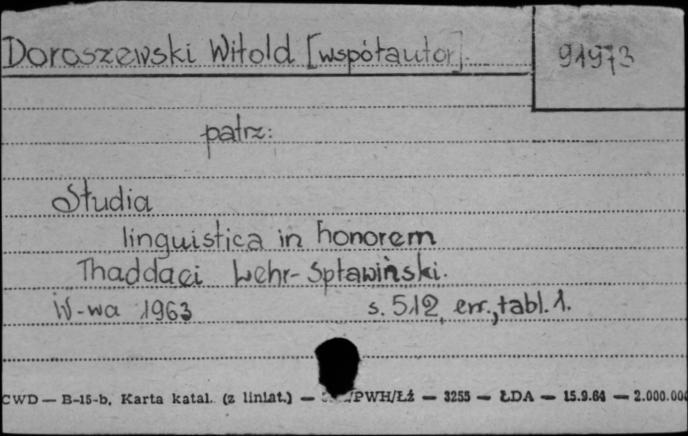 Doroszewski Witold [współautor].
91973
patrz:
Studia
linguistica in honorem
Thaddaei Lehr-Spławiński.
W-wa 1963 s. 512, err., tabl. 1.
CWD — B-15-b. Karta katal. (z liniat.) — /PWH/Łź — 3255 — ŁDA — 15.9.64 — 2.000.000